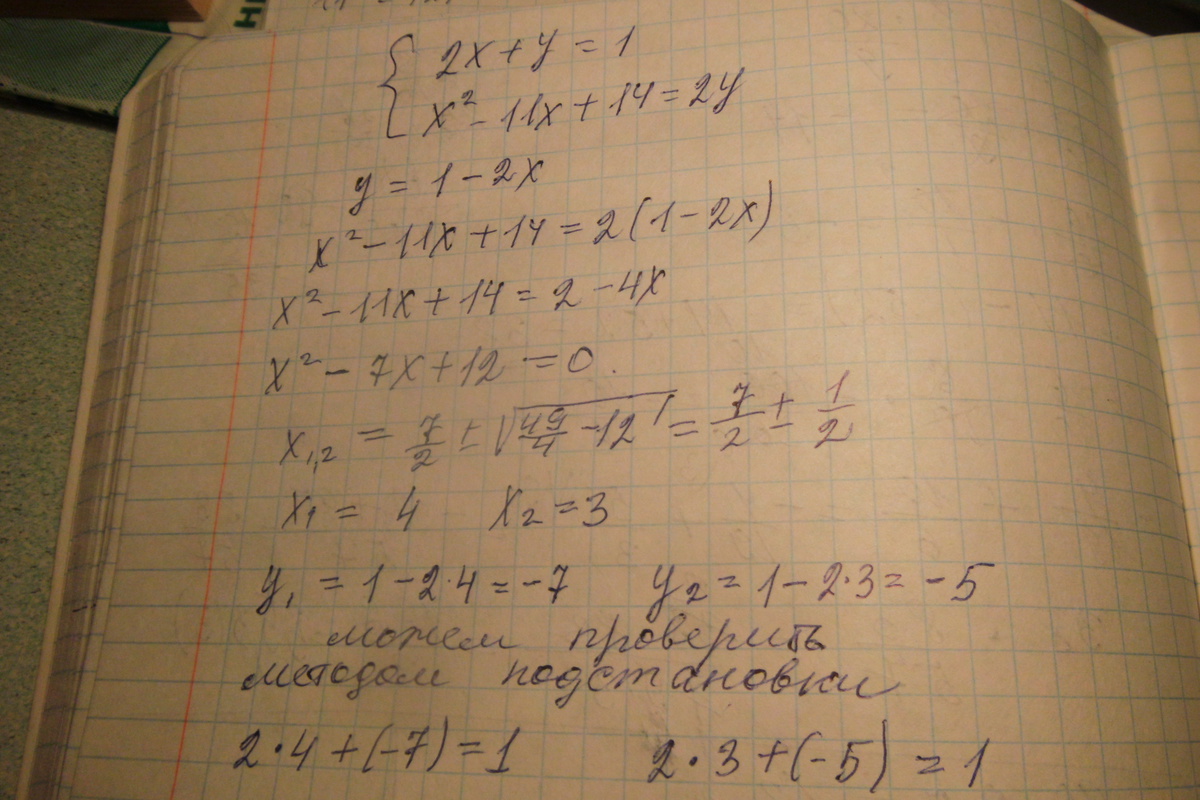 { 2x + y = 1
x² - 11x + 14 = 2y
y = 1 - 2x
x² - 11x + 14 = 2(1 - 2x)
x² - 11x + 14 = 2 - 4x
x² - 7x + 12 = 0.
x₁,₂ = 7/2 ± √(49/4 - 12) = 7/2 ± 1/2
x₁ = 4 x₂ = 3
y₁ = 1 - 2·4 = -7 y₂ = 1 - 2·3 = -5
можем проверить
методом подстановки
2·4 + (-7) = 1 2·3 + (-5) = 1